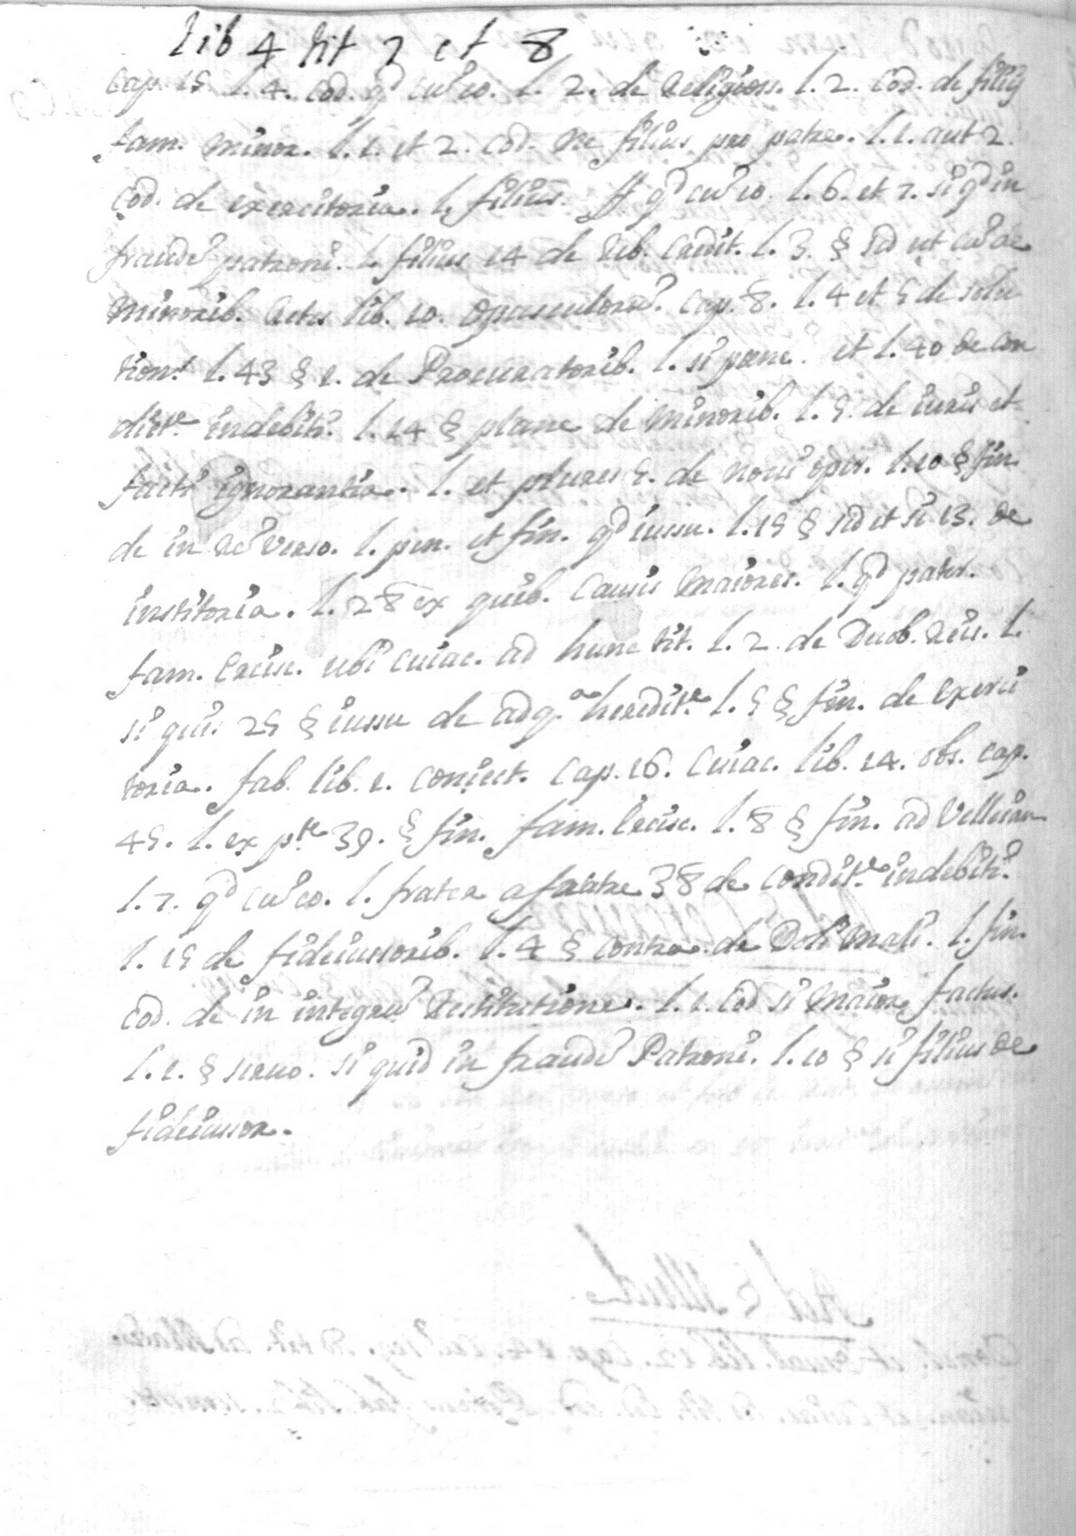 lib 4 tit 7 et 8
Cap. 15. l. 4. Cod. qd cu' eo. l. 2. de Religios. l. 2. Cod. de filiis
fam. minor. l. 1. et 2. Cod. ne filius pro patre. l. 1. aut 2.
Cod. de exercitoria. l. filius. ff qd cu' eo. l. 6. et 7. si qd in
fraude' patroni. l. filius 14 de Reb. Credit. l. 3. § sed ut cu' de
minorib. lib. 10. Opusculoru'. Cap. 8. l. 4 et 5 de solu
tion. l. 43 § 1. de Procuratorib. l. si poene. et l. 40 de Con
dict.e indebiti. l. 14 § plane de minorib. l. 5. de iuris et
facti ignorantia. l. et plures 5. de novi oper. l. 10 § fin.
de in re' verso. l. pen. et fin. qd iussu. l. 15 § sed et si 13. de
institoria. l. 28 ex quib. Causis Maiores. l. qd pater.
fam. Ercisc. ubi Cuiac. ad hunc tit. l. 2. de Duob. Reis. l.
si quis 25 § iussu de adq.a heredit.e l. 5 § fin. de Exerci
toria. fab. lib. 1. Coniect. Cap. 16. Cuiac. lib. 14. obs. cap.
45. l. ex p.te 39. § fin. fam. Ercisc. l. 8 § fin. ad Velleian
l. 7. qd cu' eo. l. frater a fratre 38 de Condit.e indebiti.
l. 15 de fideiussorib. l. 4 § contra de Doli Mali. l. fin.
Cod. de in integru' Restitutione. l. 1. Cod si Maior factus.
l. 1. § servo. si quid in fraude' Patroni. l. 10 § si filius de
fideiussor.